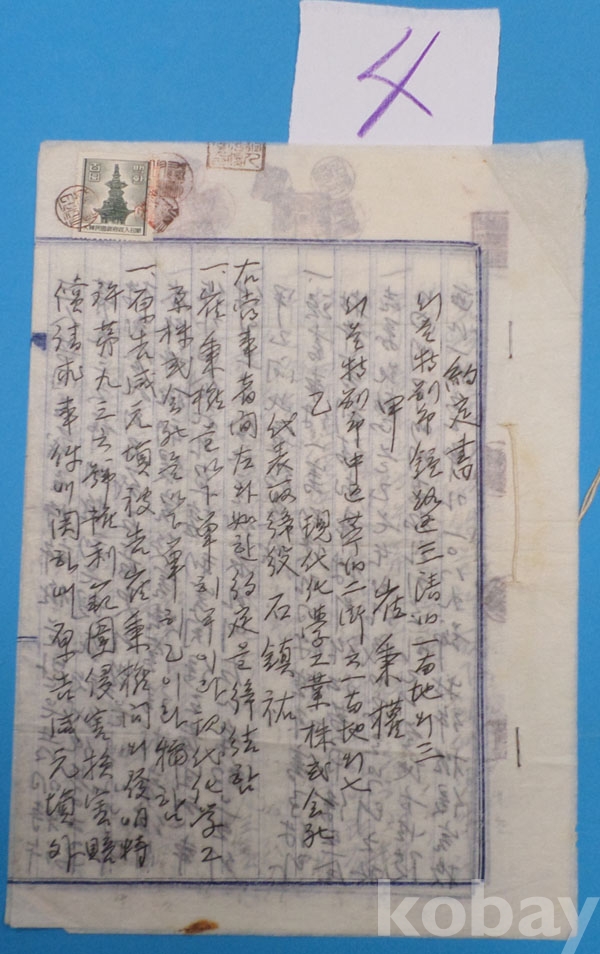 4
約定書
서울特別市鍾路区三淸洞一番地의三
甲 崔秉權
서울特別市中区草洞二街六一番地의七
乙 現代化学工業株式会社
代表取締役 石鎮祐
右当事者間左와如한約定을締結함
一. 崔秉權을以下單히甲이라現代化学工
業株式会社을以下單히乙이라稱함
一. 原告咸元塡被告崔秉權間의發明特
許第九三六一號権利範圍侵害損害賠
償請求事件에関하여原告咸元塡外
kobay